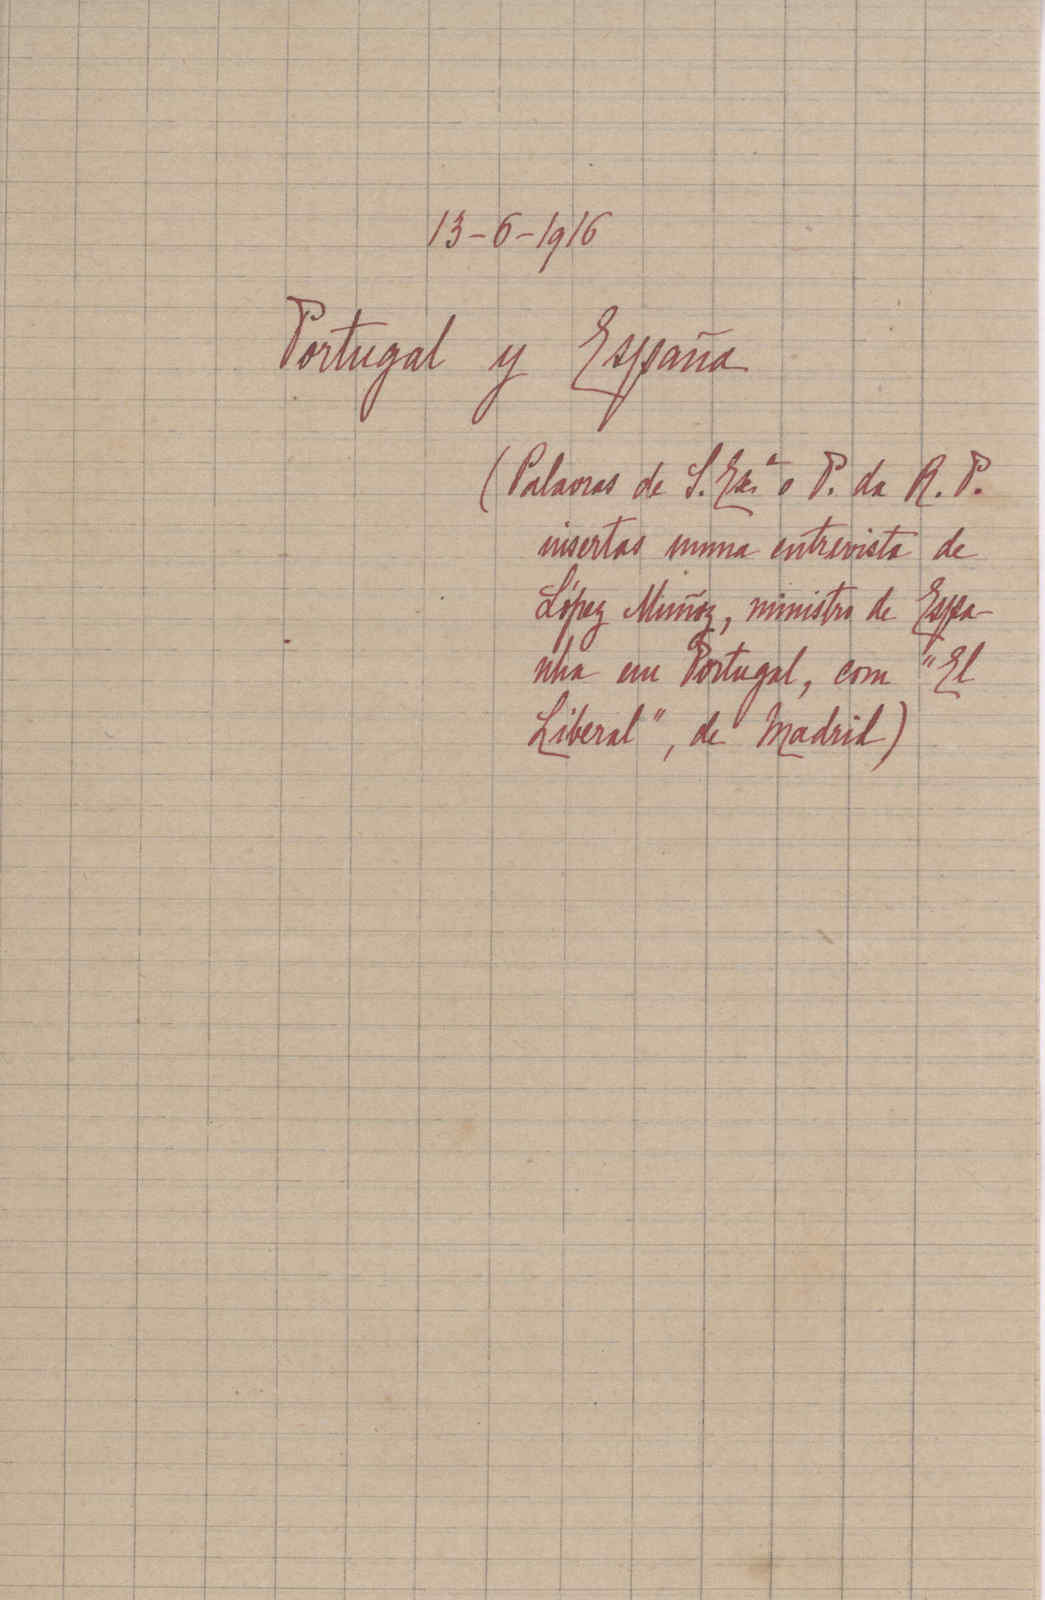 13-6-1916
Portugal y España
(Palavras de S. Ex.ª o P. da R. P.
insertas numa entrevista de
López Muñoz, ministro de Espa-
nha em Portugal, com "El
Liberal", de Madrid)